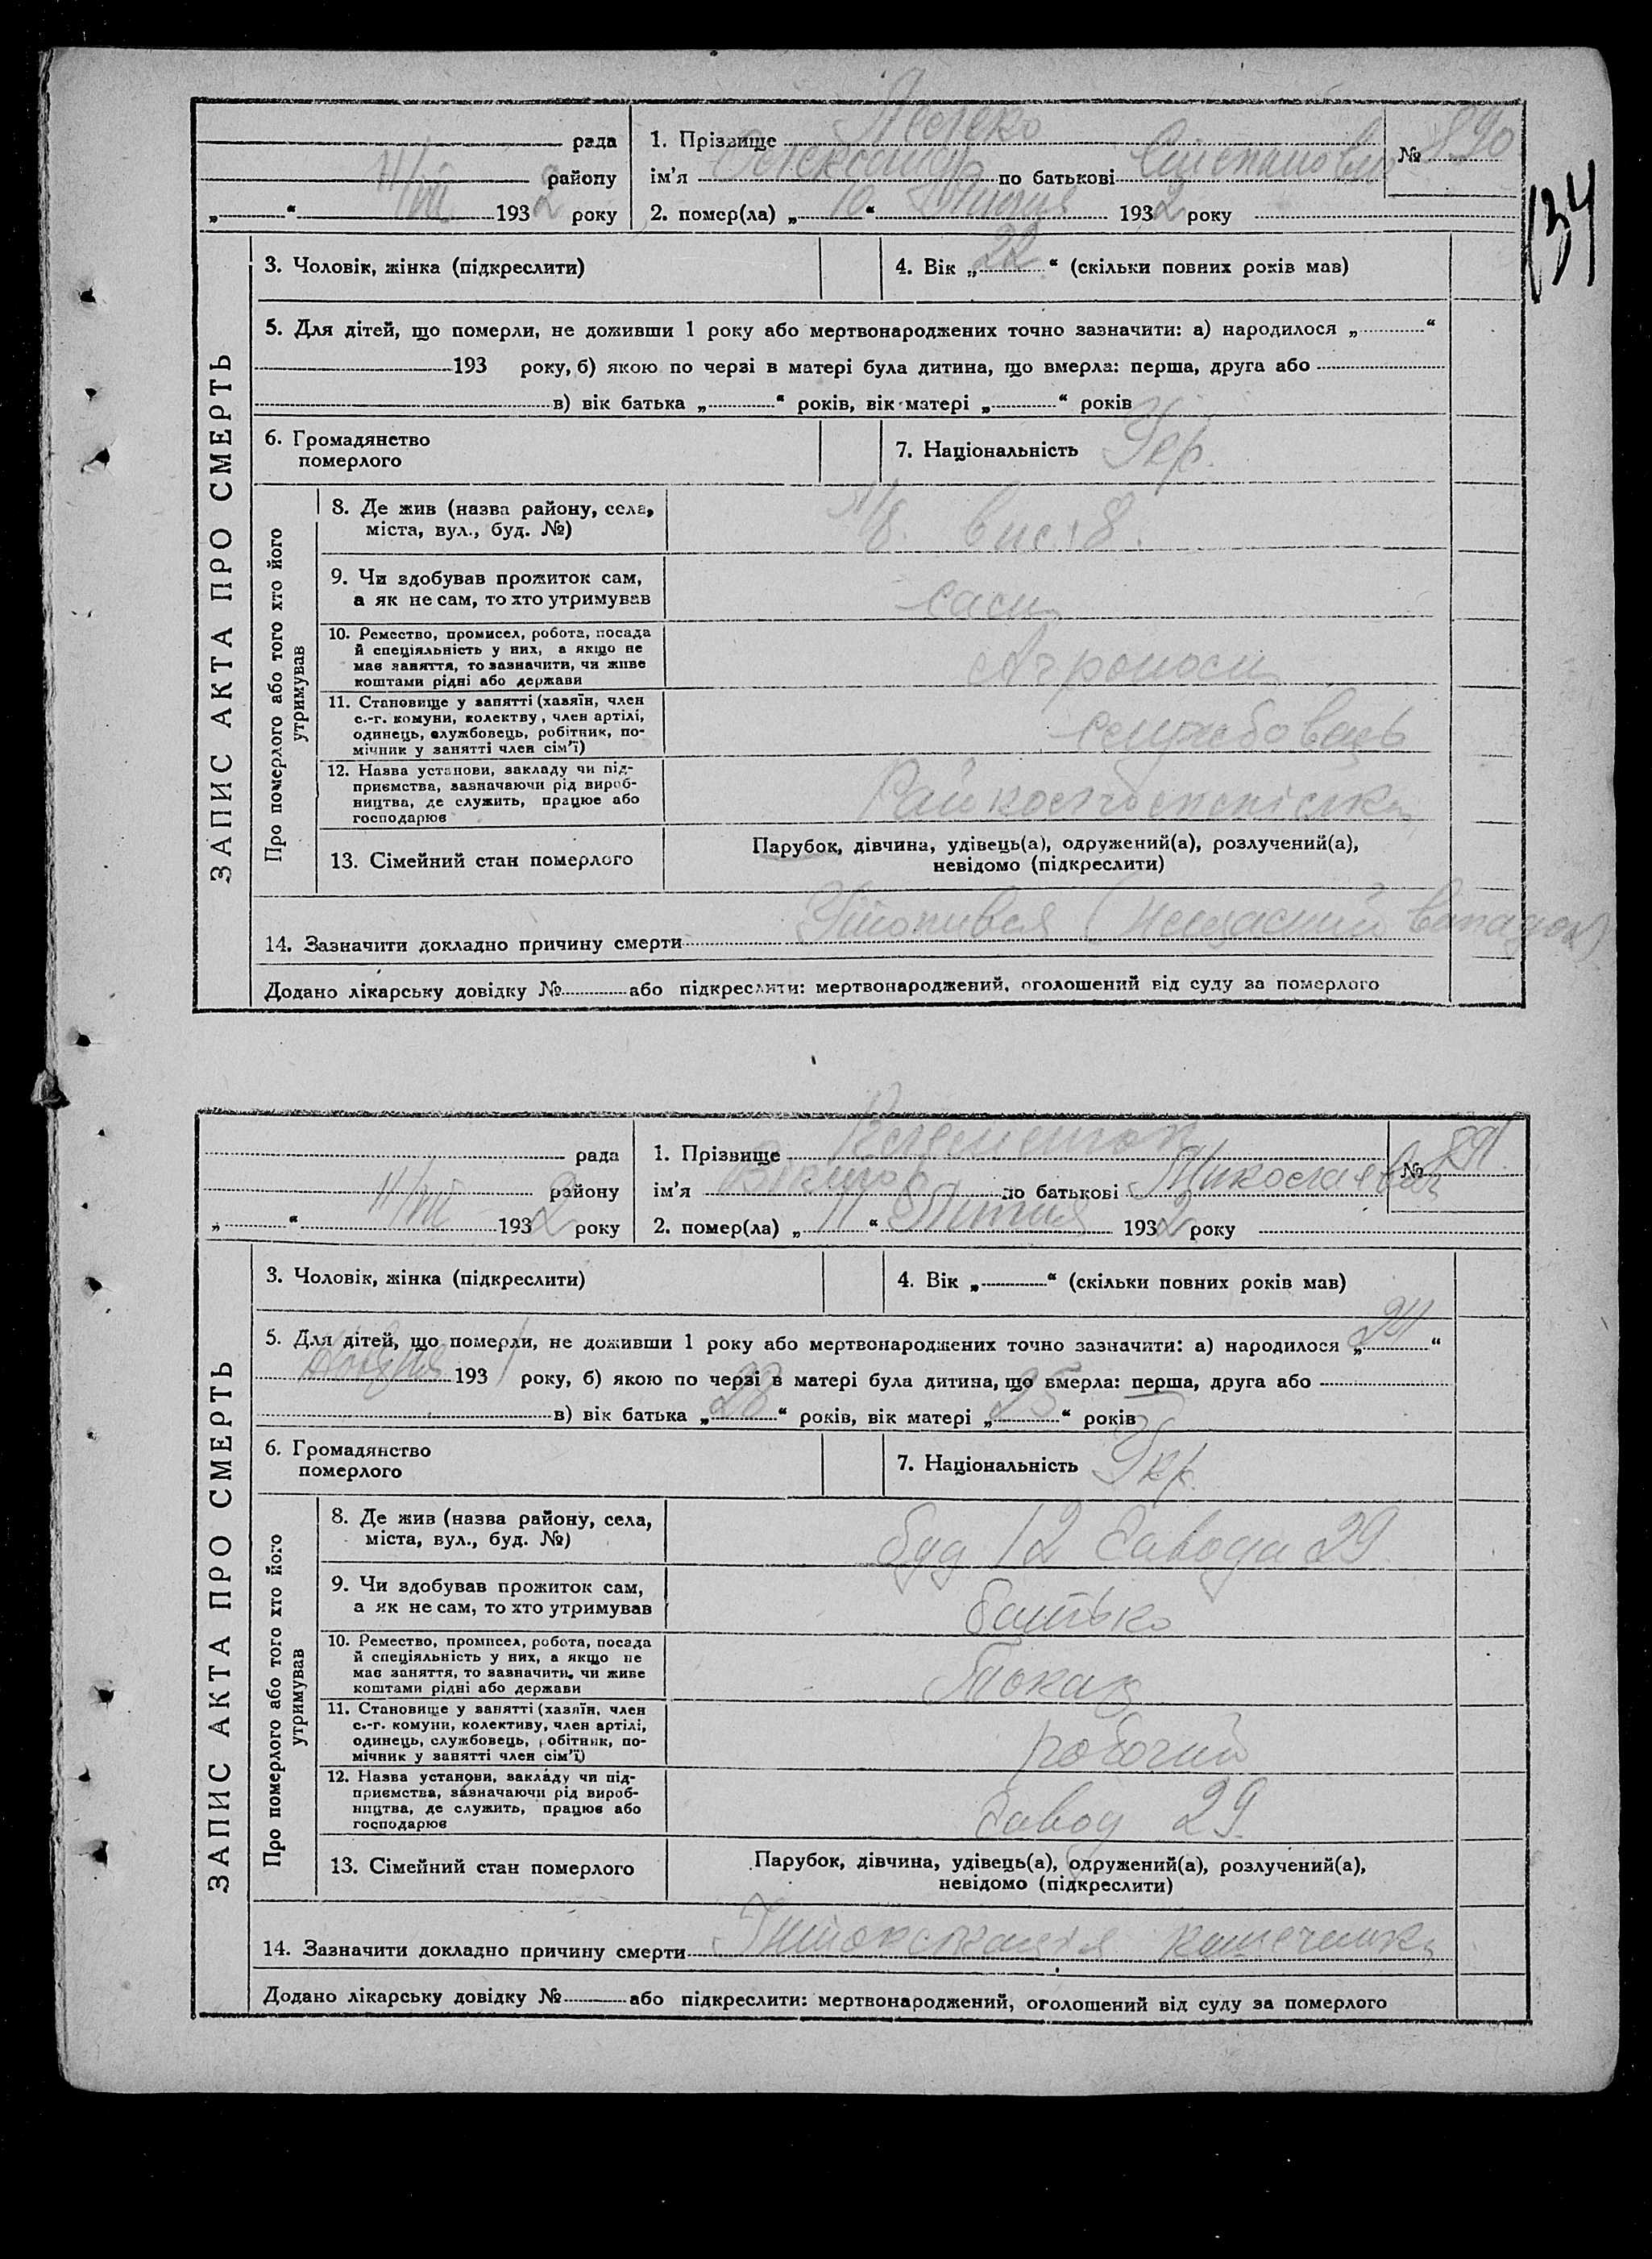 134
рада
району
11/VIII 1932 року
1. Прізвище
№ 890
ім'я Олександр по батькові Степанович
2. помер(ла) „ 10 “ 1932 року
ЗАПИС АКТА ПРО СМЕРТЬ
3. Чоловік, жінка (підкреслити)
4. Вік „ 22 “ (скільки повних років мав)
5. Для дітей, що померли, не доживши 1 року або мертвонароджених точно зазначити: а) народилося „ “
193 року, б) якою по черзі в матері була дитина, що вмерла: перша, друга або
в) вік батька „ “ років, вік матері „ “ років
6. Громадянство
померлого
7. Національність Укр.
Про померлого або того хто його
утримував
8. Де жив (назва району, села,
міста, вул., буд. №)
9. Чи здобував прожиток сам,
а як не сам, то хто утримував
сам
10. Ремество, промисел, робота, посада
й спеціяльність у них, а якщо не
має заняття, то зазначити, чи живе
коштами рідні або держави
Агроном
11. Становище у занятті (хазяїн, член
с.-г. комуни, колектву, член артілі,
одинець, службовець, робітник, по-
мічник у занятті член сім'ї)
службовець
12. Назва установи, закладу чи під-
приємства, зазначаючи рід вироб-
ництва, де служить, працює або
господарює
13. Сімейний стан померлого
Парубок, дівчина, удівець(а), одружений(а), розлучений(а),
невідомо (підкреслити)
14. Зазначити докладно причину смерти Утопився (Нещасний випадок)
Додано лікарську довідку № або підкреслити: мертвонароджений, оголошений від суду за померлого
рада
району
11/VIII 1932 року
1. Прізвище
№ 891
ім'я Віктор по батькові Миколаєвич
2. помер(ла) „ 11 “ 1932 року
ЗАПИС АКТА ПРО СМЕРТЬ
3. Чоловік, жінка (підкреслити)
4. Вік „ “ (скільки повних років мав)
5. Для дітей, що померли, не доживши 1 року або мертвонароджених точно зазначити: а) народилося „ 24 “
1931 року, б) якою по черзі в матері була дитина, що вмерла: перша, друга або
в) вік батька „ 28 “ років, вік матері „ 25 “ років
6. Громадянство
померлого
7. Національність Укр.
Про померлого або того хто його
утримував
8. Де жив (назва району, села,
міста, вул., буд. №)
буд 12 Завода 29
9. Чи здобував прожиток сам,
а як не сам, то хто утримував
батько
10. Ремество, промисел, робота, посада
й спеціяльність у них, а якщо не
має заняття, то зазначити, чи живе
коштами рідні або держави
Токар
11. Становище у занятті (хазяїн, член
с.-г. комуни, колективу, член артілі,
одинець, службовець, робітник, по-
мічник у занятті член сім'ї)
робочий
12. Назва установи, закладу чи під-
приємства, зазначаючи рід вироб-
ництва, де служить, працює або
господарює
Завод 29
13. Сімейний стан померлого
Парубок, дівчина, удівець(а), одружений(а), розлучений(а),
невідомо (підкреслити)
14. Зазначити докладно причину смерти
Додано лікарську довідку № або підкреслити: мертвонароджений, оголошений від суду за померлого